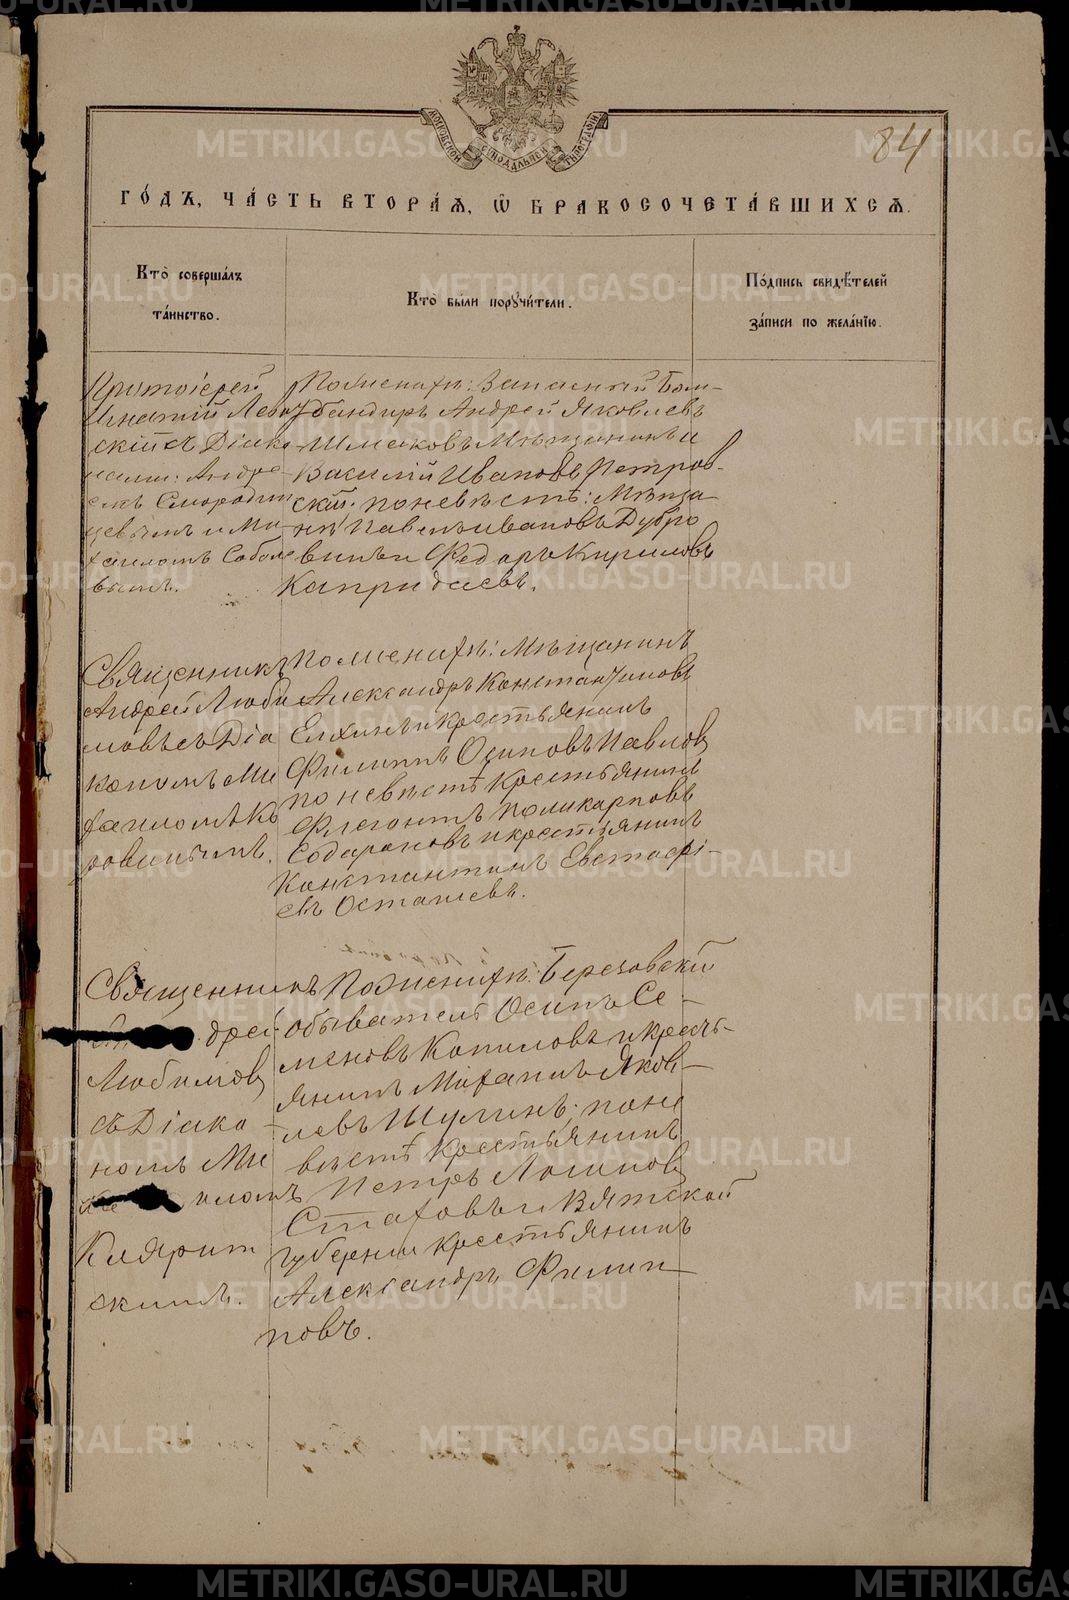 МОСКОВСКОЙ СѴНОДАЛЬНОЙ ТИПОГРАФІИ
84
ГО́ДЪ, ЧА́СТЬ ВТОРА́Я, Ѡ҆ БРАКОСОЧЕТА́ВШИХСЯ.
Кто̀ соверша́лъ
та́инство.
Кто̀ бы́ли порꙋчи́тели.
По́дпись свидѣ́телей
за́писи по жела́нїю.
Протоіерей
Игнатій Лев
скій съ Діако
нами: Андре-
емъ Смородин
цевымъ и Ми
хаиломъ Собо
вымъ.
По женихѣ: Запасный Бом-
бандиръ Андрей Яковлевъ
Шмаковъ Мѣщанинъ и
Василій Ивановъ Петров-
скій. по невѣстѣ: Мѣща-
не Павелъ Ивановъ Дубро
винъ и Федоръ Кириловъ
Священникъ
Андрей Люби
мовъ съ Діа
кономъ Ми
хаиломъ Ко
ровинымъ.
По женихѣ: Мѣщанинъ
Александръ Константиновъ
Елхинъ и крестьянинъ
Филиппъ Осиповъ Павлов
по невѣстѣ Крестьянинъ
Флегонтъ Поликарповъ
и крестьянинъ
Константинъ Евстафі-
евъ Осташевъ.
Священникъ
дрей
Любимов
съ Діако-
номъ Ми
иломъ
скимъ.
По женихѣ: Березовскій
обыватель Осипъ Се-
меновъ Копыловъ и кресть-
янинъ Михаилъ Яков-
левъ Шулинъ; по не
вѣстѣ Крестьянинъ
Петръ Логинов
Стаховъ и Вятской
губерніи Крестьянинъ
Александръ Филип-
повъ.
METRIKI.GASO-URAL.RU